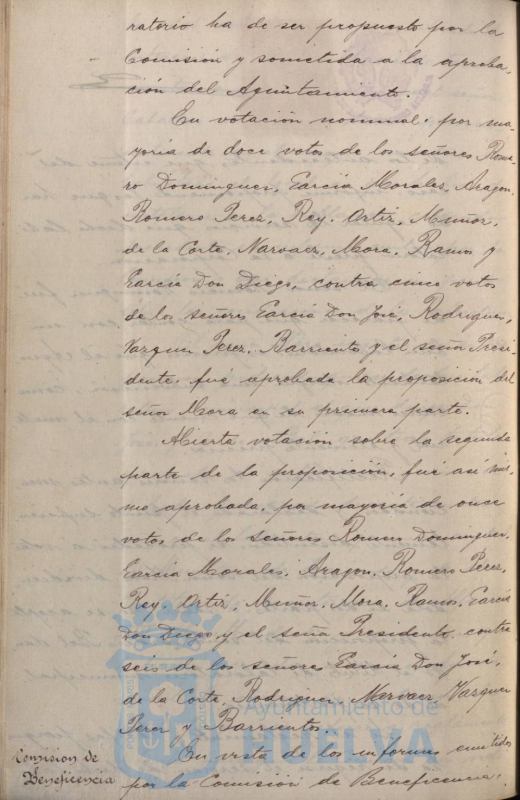 ratorio ha de ser propuesto por la
Comisión y sometida a la aproba-
ción del Ayuntamiento.
En votación nominal, por ma-
yoría de doce votos de los señores Rome-
ro Dominguez, Garcia Morales, Aragon,
Romero Perez, Rey, Ortiz, Muñoz,
de la Corte, Narvaez, Mora, Ramos y
Garcia Don Diego, contra cinco votos
de los señores Garcia Don José, Rodriguez,
Vazquez Perez, Barrientos y el señor Presi-
dente, fué aprobada la proposición del
señor Mora en su primera parte.
Abierta votación sobre la segunda
parte de la proposición, fué así mis-
mo aprobada, por mayoría de once
votos de los señores Romero Dominguez,
Garcia Morales, Aragon, Romero Perez,
Rey, Ortiz, Muñoz, Mora, Ramos, Garcia
Don Diego, y el señor Presidente, contra
seis de los señores Garcia Don José,
de la Corte, Rodriguez, Narvaez, Vazquez
Perez y Barrientos.
Comision de
Beneficencia
En vista de los informes emitidos
por la Comisión de Beneficencia,
Ayuntamiento de
HUELVA